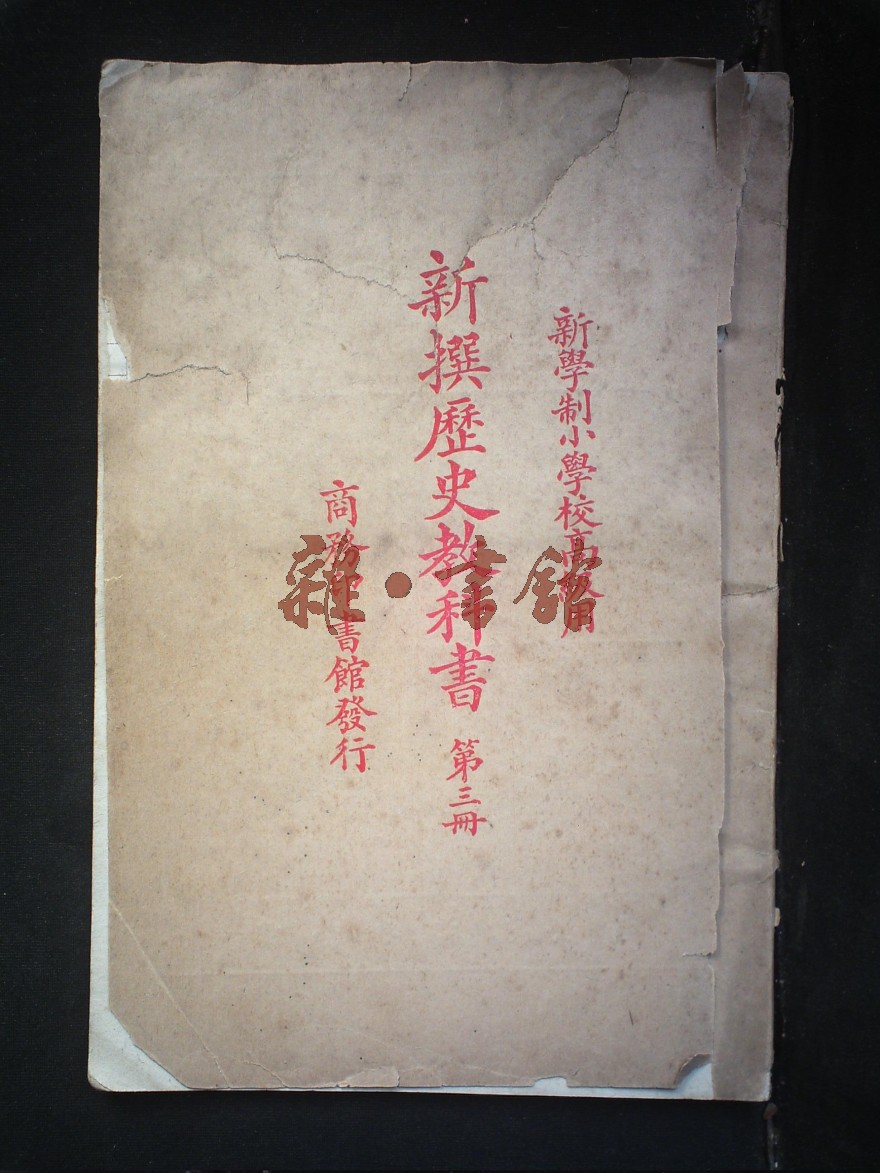 新學制小學校高級用
新撰歷史教科書 第三冊
商務印書館發行
雜·書館